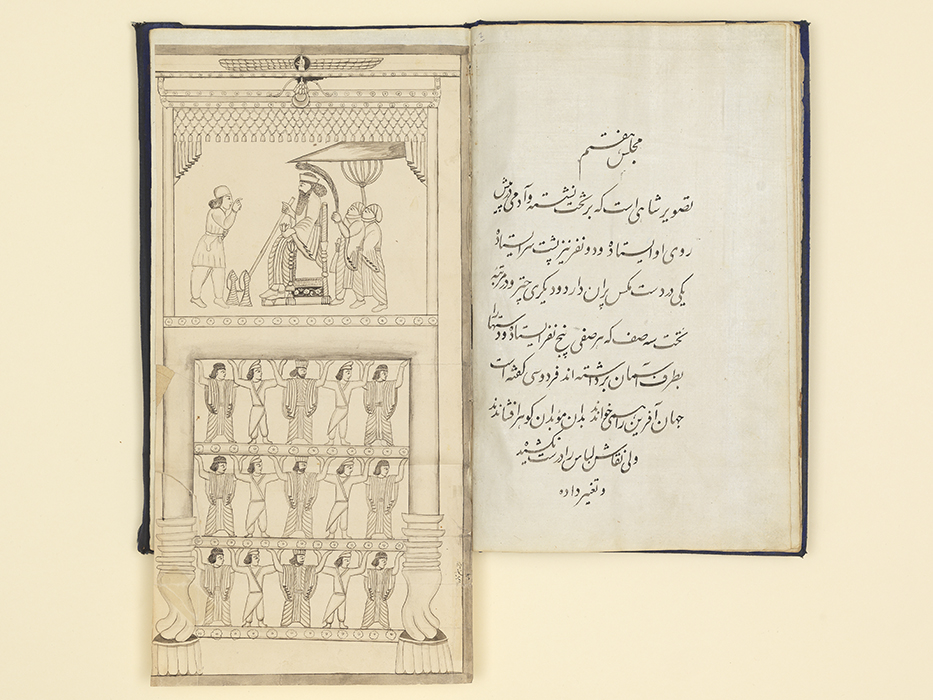 مجلس هفتم
تصویر شاهی است که بر تخت نشسته و آدمی در پیش
روی او ایستاده و دو نفر نیز پشت سر ایستاده
یکی در دست مکس پران دارد و دیگری چتر و در مرتبه
تخت سه صف که هر صفی پنج نفر ایستاده و دستها را
بطرف آسمان برداشته اند فردوسی گفته است
جهان آفرین را همی خواندند بدان موبدان گوهر افشاندند
ولی نقاش لباس را درست نکشیده
و تغییر داده